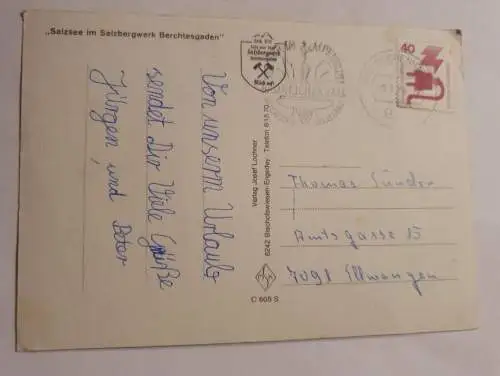 „Salzsee im Salzbergwerk Berchtesgaden"
Von unserm Urlaub
sendet Dir Viele Grüße
Jürgen und Peter
Salzbergwerk
Berchtesgaden
Glück auf!
Verlag Josef Lochner
8242 Bischofswiesen-Engedey · Telefon
C 605 S
40
Thomas
Amtsgasse 15
7091 Ellwangen